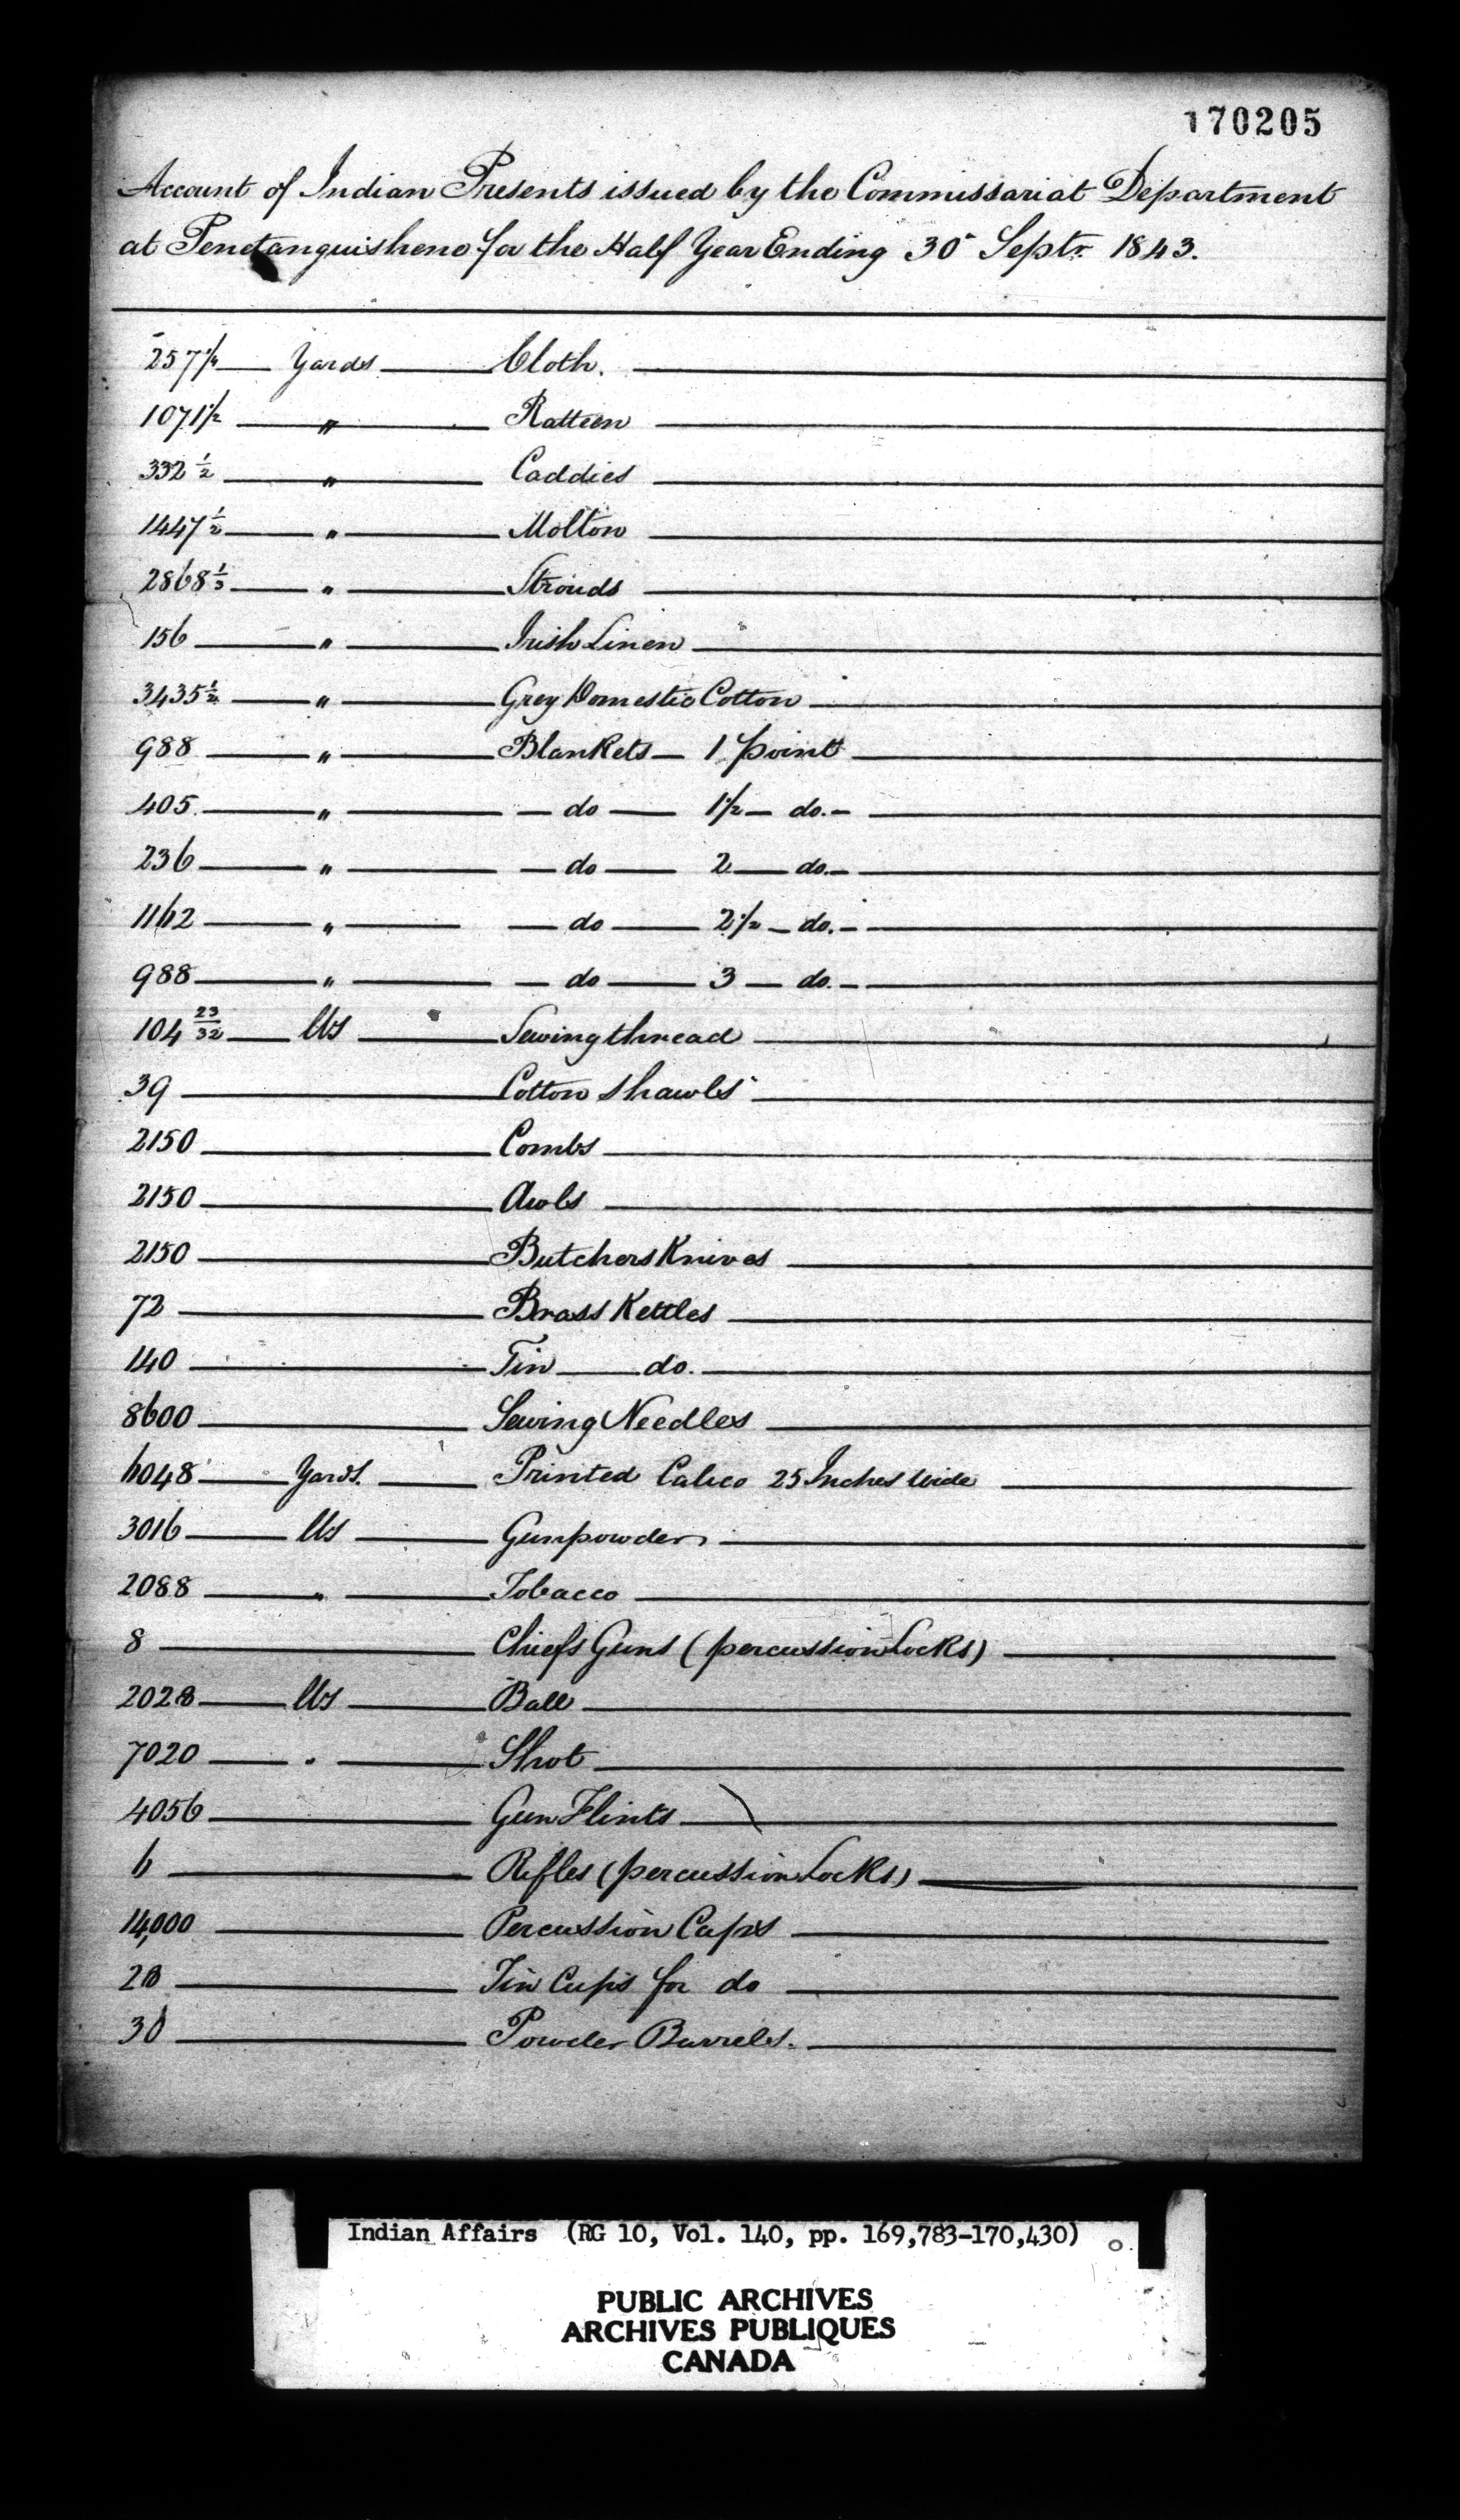 170205
Account of Indian Presents issued by the Commissariat Department
at Penetanguishene for the Half Year Ending 30 Septr 1843.
257 1/4 Yards Cloth.
1071 1/2 " Ratteen
332 1/2 " Caddies
1447 1/2 " Molton
2868 1/3 " Strouds
156 " Irish Linen
3435 1/2 " Grey Domestic Cotton
988 " Blankets 1 point
405 " do 1 1/2 do.
236 " do 2 do.
1162 " do 2 1/2 do.
988 " do 3 do.
104 23/32 lbs Sewing thread
39 Cotton Shawls
2150 Combs
2150 Awls
2150 Butchers Knives
72 Brass Kettles
140 Tin do.
8600 Sewing Needles
6048 Yards. Printed Calico 25 Inches wide
3016 lbs Gunpowder
2088 " Tobacco
8 Chiefs Guns (percussion Locks)
2028 lbs Ball
7020 " Shot
4056 Gun Flints
6 Rifles (percussion Locks)
14,000 Percussion Caps
28 Tin Cups for do
30 Powder Barrels.
Indian Affairs (RG 10, Vol. 140, pp. 169,783-170,430)
PUBLIC ARCHIVES
ARCHIVES PUBLIQUES
CANADA